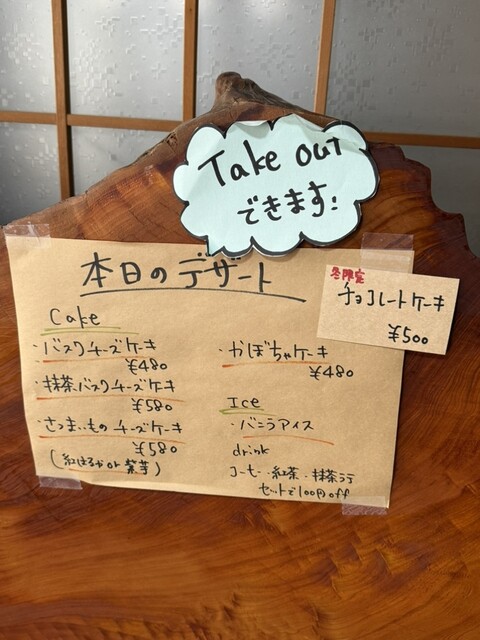 Take out
できます!
本日のデザート
冬限定
チョコレートケーキ
¥500
Cake
・バスクチーズケーキ
¥480
・抹茶バスクチーズケーキ
¥580
・さつまいものチーズケーキ
¥580
(紅はるか or 紫芋)
・かぼちゃケーキ
¥480
Ice
・バニラアイス
drink
コーヒー・紅茶・抹茶ラテ
セットで100円off